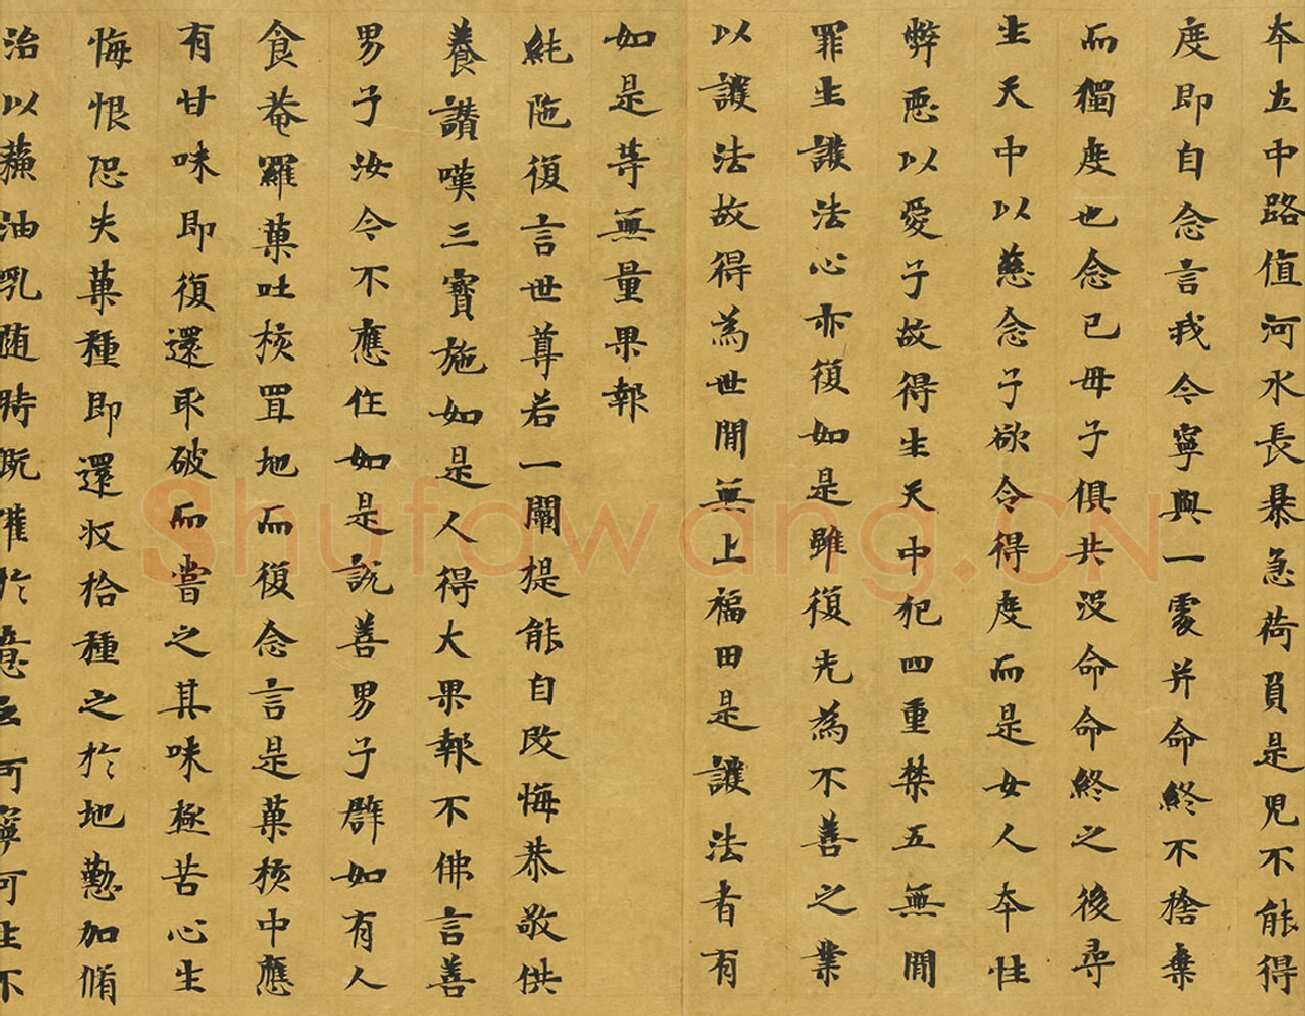 本立中路值河水長暴急荷負是児不能得
度即自念言我今寧與一處并命終不捨棄
而獨度也念已母子俱共没命命終之後尋
生天中以慈念子欲令得度而是女人本性
弊惡以愛子故得生天中犯四重禁五無間
罪生護法心亦復如是雖復先為不善之業
以護法故得為世間無上福田是護法者有
如是等無量果報
純陁復言世尊若一闡提能自改悔恭敬供
養讃嘆三寶施如是人得大果報不佛言善
男子汝今不應作如是説善男子辟如有人
食菴羅菓吐核置地而復念言是菓核中應
有甘味即復還取破而嘗之其味極苦心生
悔恨恐失菓種即還收拾種之於地懃加脩
治以蘓油乳随時既灌於意云何寧可生不
Shufawang.CN